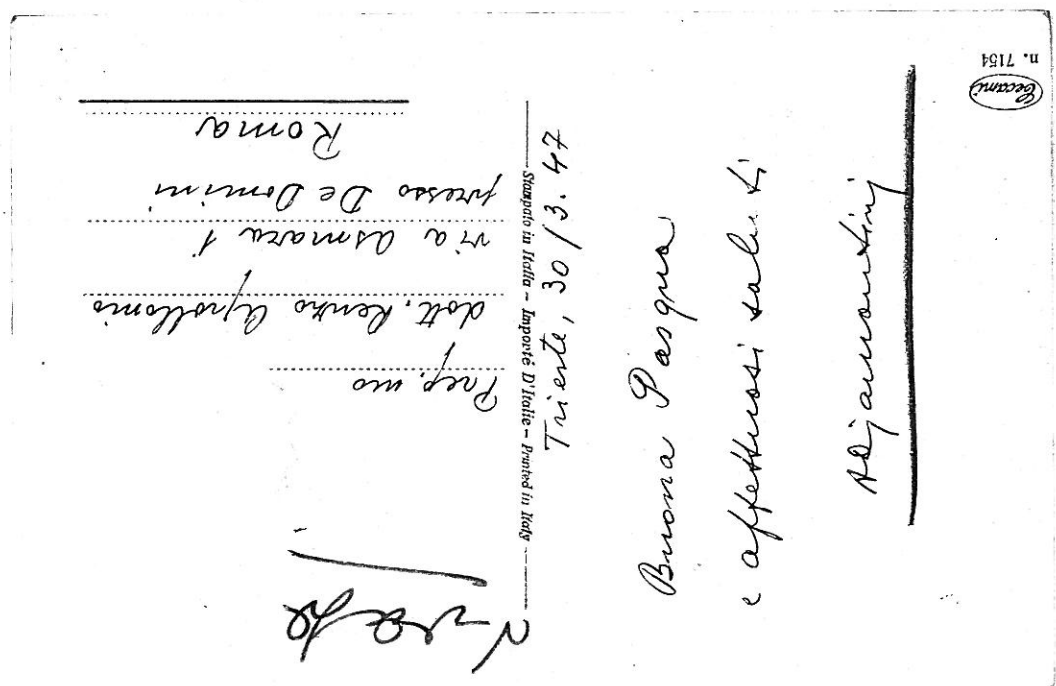 Trieste, 30/3. 47
Buona Pasqua
e affettuosi saluti
Stampato in Italia – Importé D'Italie – Printed in Italy
Preg.mo
dott. Renzo Apollonio
via Asmara 1
presso De Domini
Roma
Cecami
n. 7154